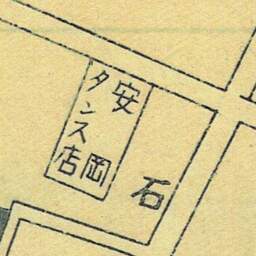 安岡
タンス店
石